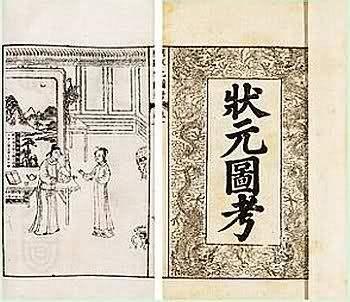 狀元圖考